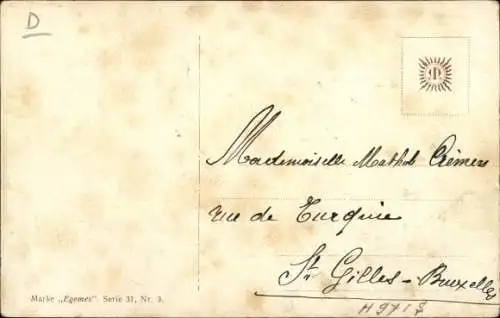 D
Mademoiselle Mathilde Crémers
rue de Turquie
St Gilles-Bruxelles
Marke „Egemes". Serie 31, Nr. 3.